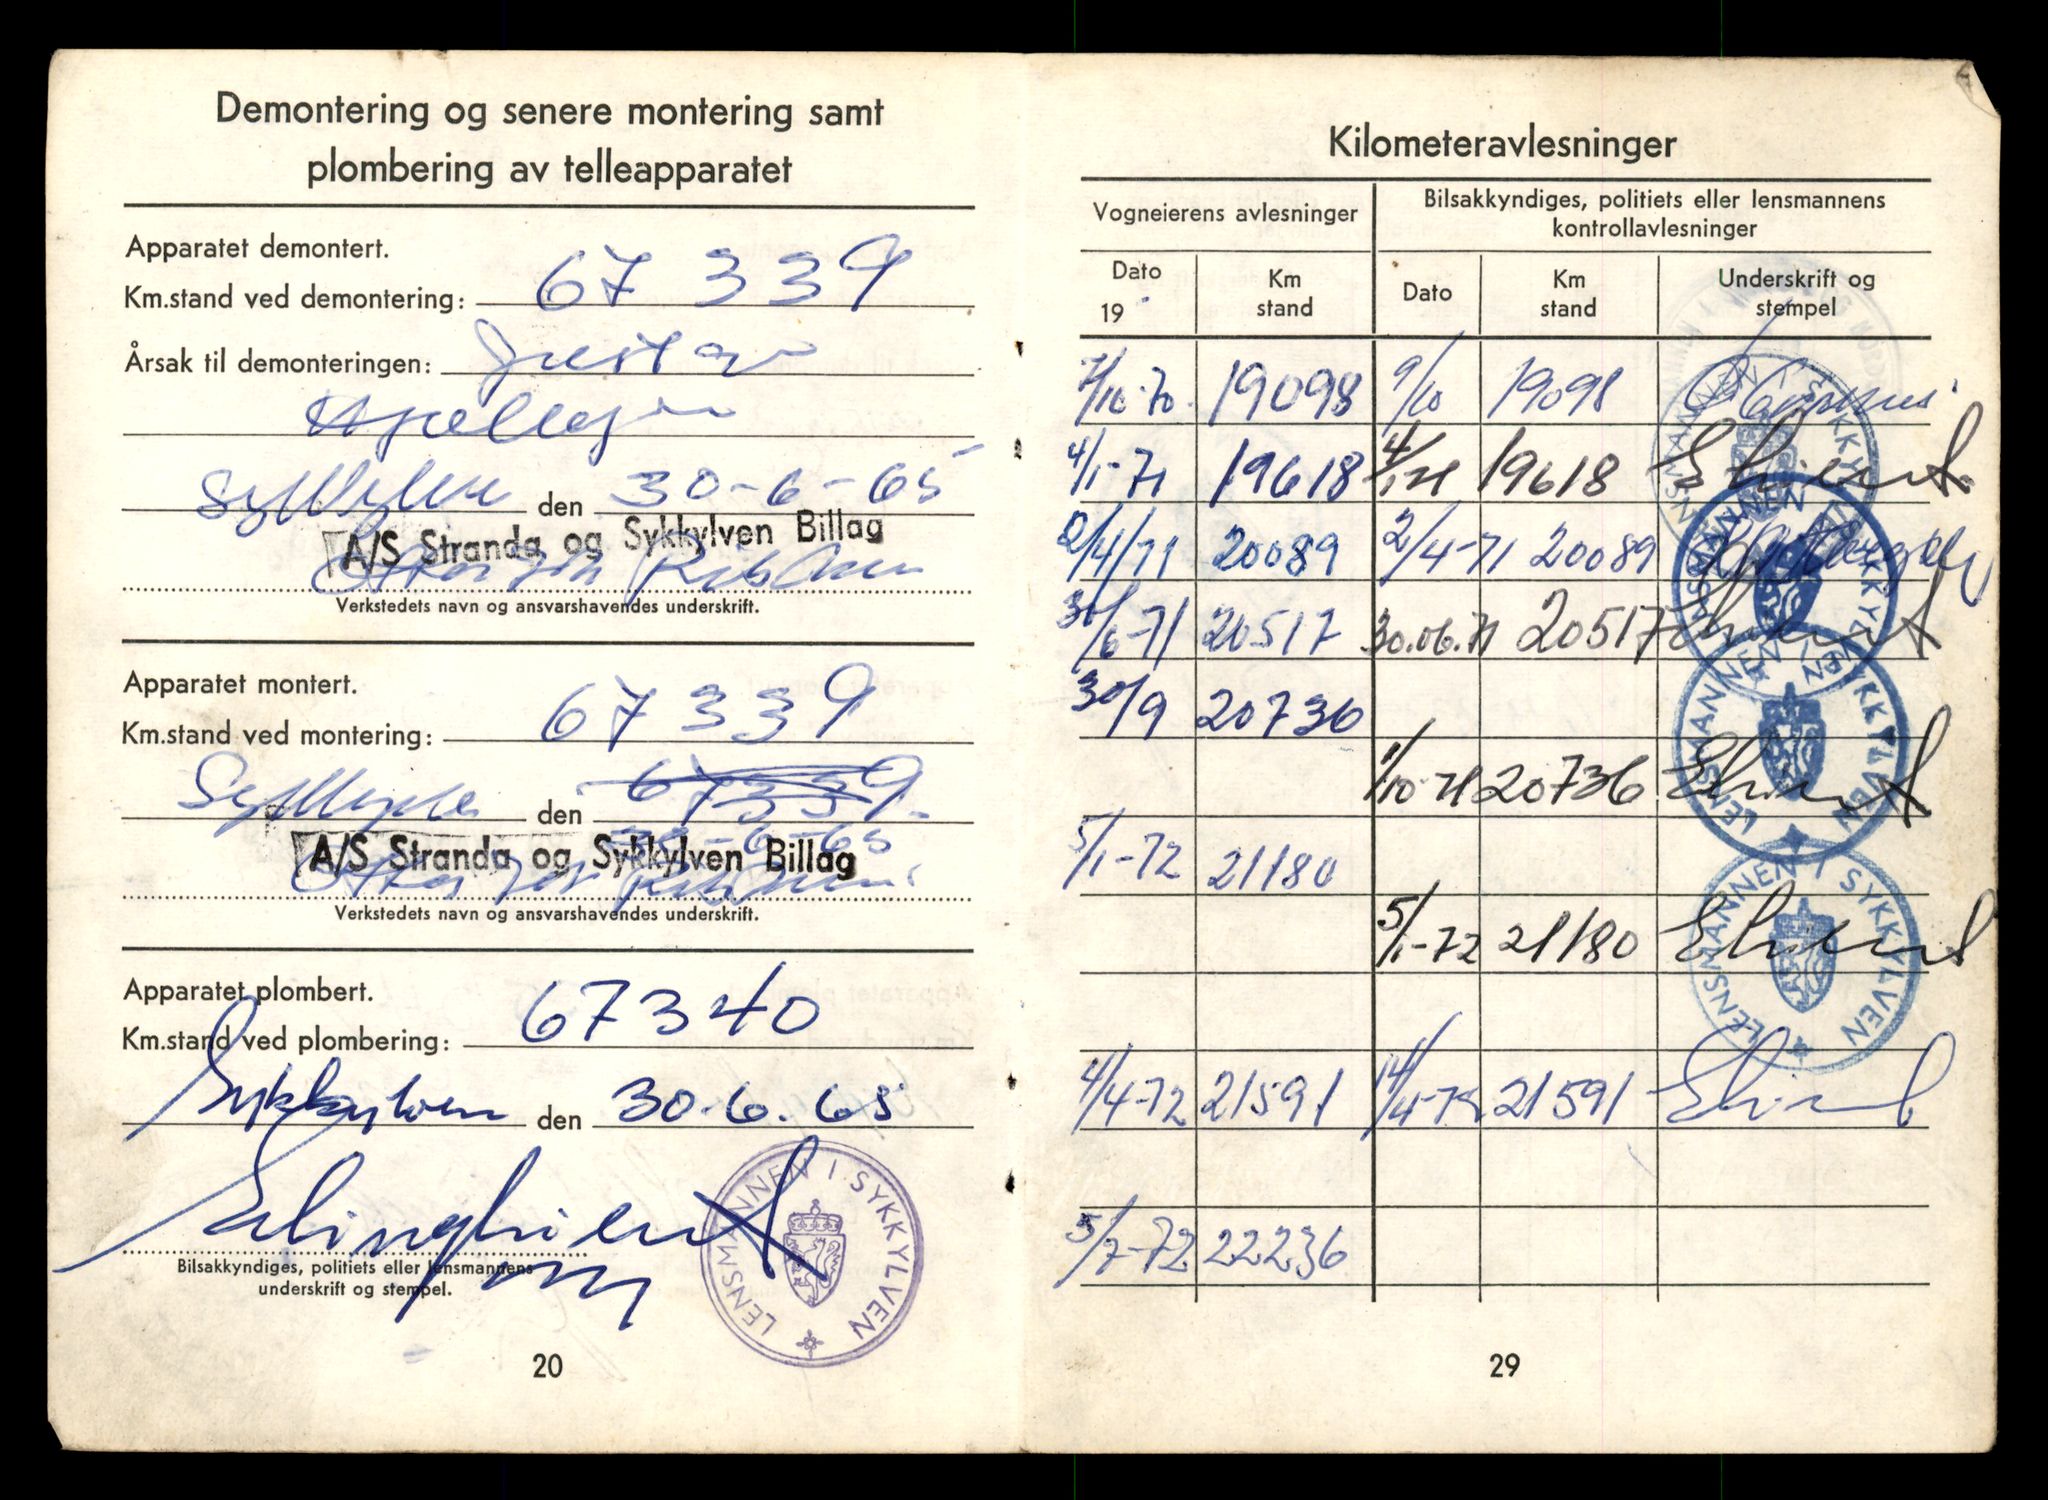 Demontering og senere montering samt
plombering av telleapparatet
Apparatet demontert.
Km.stand ved demontering: 67 339
Årsak til demonteringen:
den 30-6-65
A/S Stranda og Sykkylven Billag
Verkstedets navn og ansvarshavendes underskrift.
Apparatet montert.
Km.stand ved montering: 67 339
den 67339
30-6-65
A/S Stranda og Sykkylven Billag
Verkstedets navn og ansvarshavendes underskrift.
Apparatet plombert.
Km.stand ved plombering: 67340
Sykkylven den 30.6.65
Bilsakkyndiges, politiets eller lensmannens
underskrift og stempel.
LENSMANNEN I SYKKYLVEN
20
Kilometeravlesninger
Vogneierens avlesninger Bilsakkyndiges, politiets eller lensmannens
kontrollavlesninger
Dato Km Dato Km Underskrift og
19 stand stand stempel
7/10-70. 19098 9/10 19098
4/1-71 19618 4/1-71 19618
2/4/71 20089 2/4-71 20089
30/6-71 20517 30.06.71 20517
30/9 20736
1/10-71 20736
5/1-72 21180
5/1-72 21180
4/4-72 21591 14/4-72 21591
5/7-72 22236
LENSMANNEN I SYKKYLVEN
LENSMANNEN I SYKKYLVEN
LENSMANNEN I SYKKYLVEN
LENSMANNEN I SYKKYLVEN
29